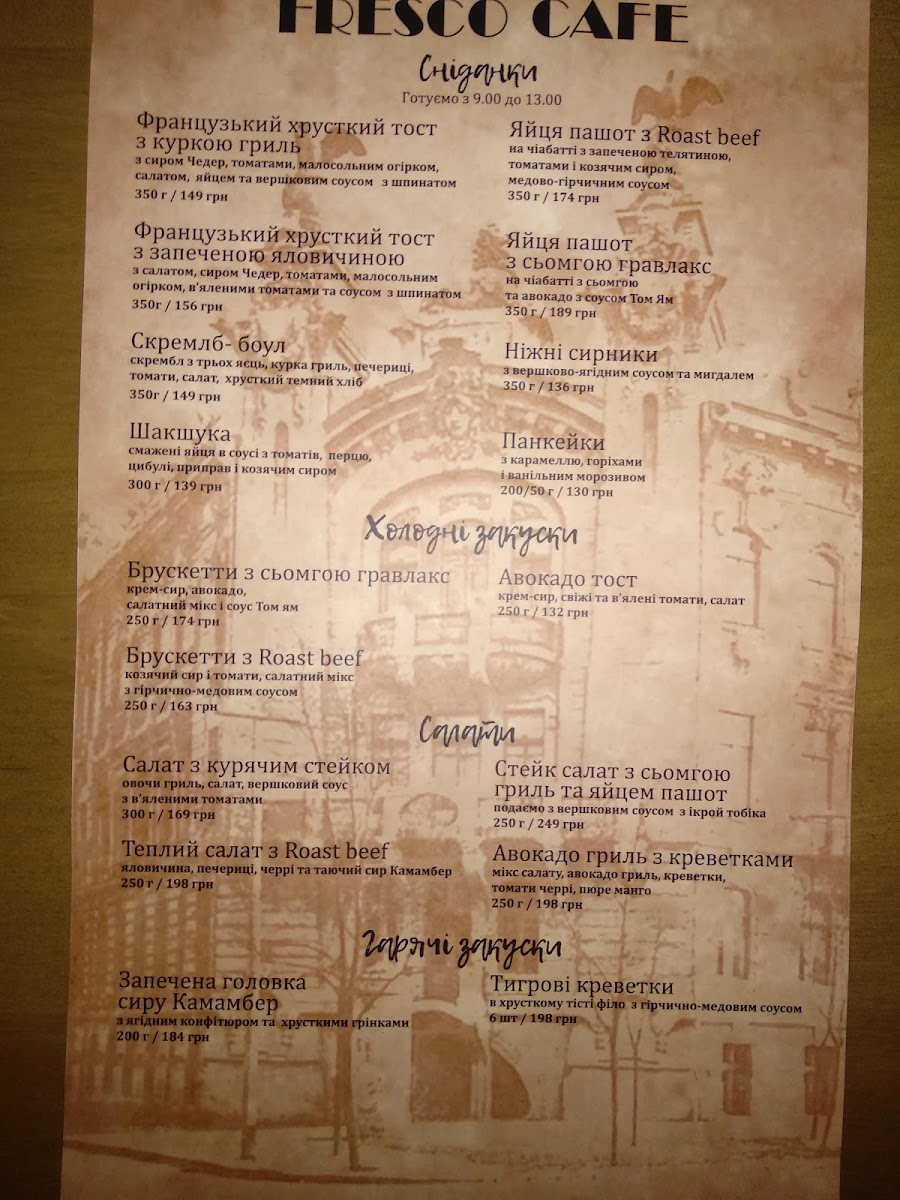 FRESCO CAFE
Сніданки
Готуємо з 9.00 до 13.00
Французький хрусткий тост
з куркою гриль
з сиром Чедер, томатами, малосольним огірком,
салатом, яйцем та вершковим соусом з шпинатом
350 г / 149 грн
Французький хрусткий тост
з запеченою яловичиною
з салатом, сиром Чедер, томатами, малосольним
огірком, в'яленими томатами та соусом з шпинатом
350г / 156 грн
Скремлб- боул
скрембл з трьох яєць, курка гриль, печериці,
томати, салат, хрусткий темний хліб
350г / 149 грн
Шакшука
смажені яйця в соусі з томатів, перцю,
цибулі, приправ і козячим сиром
300 г / 139 грн
Яйця пашот з Roast beef
на чіабатті з запеченою телятиною,
томатами і козячим сиром,
медово-гірчичним соусом
350 г / 174 грн
Яйця пашот
з сьомгою гравлакс
на чіабатті з сьомгою
та авокадо з соусом Том Ям
350 г / 189 грн
Ніжні сирники
з вершково-ягідним соусом та мигдалем
350 г / 136 грн
Панкейки
з карамеллю, горіхами
і ванільним морозивом
200/50 г / 130 грн
Холодні закуски
Брускетти з сьомгою гравлакс
крем-сир, авокадо,
салатний мікс і соус Том ям
250 г / 174 грн
Брускетти з Roast beef
козячий сир і томати, салатний мікс
з гірчично-медовим соусом
250 г / 163 грн
Авокадо тост
крем-сир, свіжі та в'ялені томати, салат
250 г / 132 грн
Салати
Салат з курячим стейком
овочи гриль, салат, вершковий соус
з в'яленими томатами
300 г / 169 грн
Теплий салат з Roast beef
яловичина, печериці, черрі та таючий сир Камамбер
250 г / 198 грн
Стейк салат з сьомгою
гриль та яйцем пашот
подаємо з вершковим соусом з ікрой тобіка
250 г / 249 грн
Авокадо гриль з креветками
мікс салату, авокадо гриль, креветки,
томати черрі, пюре манго
250 г / 198 грн
Гарячі закуски
Запечена головка
сиру Камамбер
з ягідним конфітюром та хрусткими грінками
200 г / 184 грн
Тигрові креветки
в хрусткому тісті філо з гірчично-медовим соусом
6 шт / 198 грн